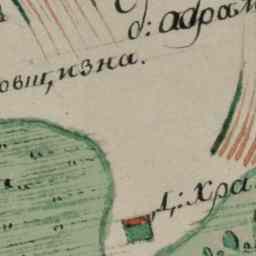 д: адрам
овщизна.
Д: хра